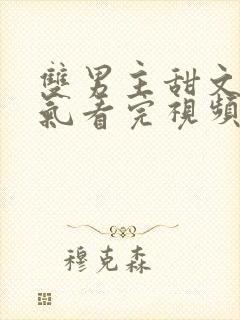 雙男主甜文
氣看完視頻
穆克森